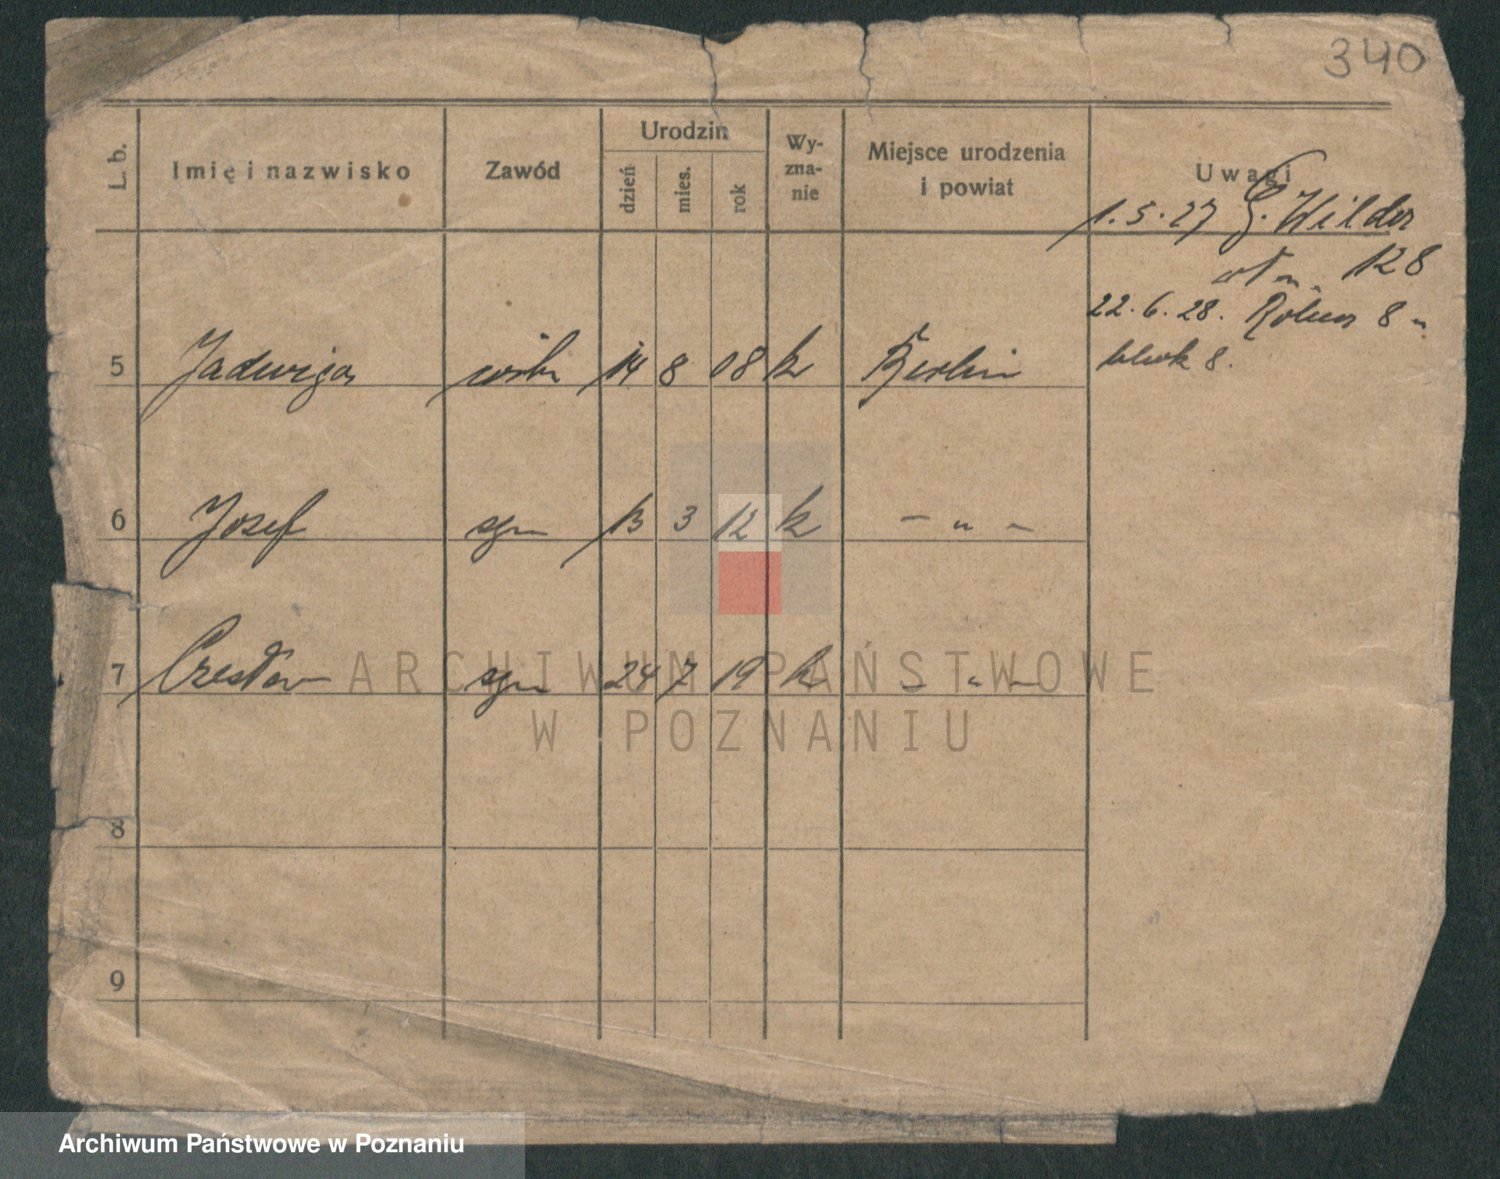 340
L. b. Imię i nazwisko Zawód Urodzin dzień mies. rok Wy-zna-nie Miejsce urodzenia i powiat Uwagi
1.5.27 G. Wilder
128
22.6.28. 8 "
5 Jadwiga 14 8 08 k Berlin blok 8.
6 Józef syn 13 3 12 k – " –
7 Czesław syn 24 7 19 k – " –
ARCHIWUM PAŃSTWOWE
W POZNANIU
8
9
Archiwum Państwowe w Poznaniu